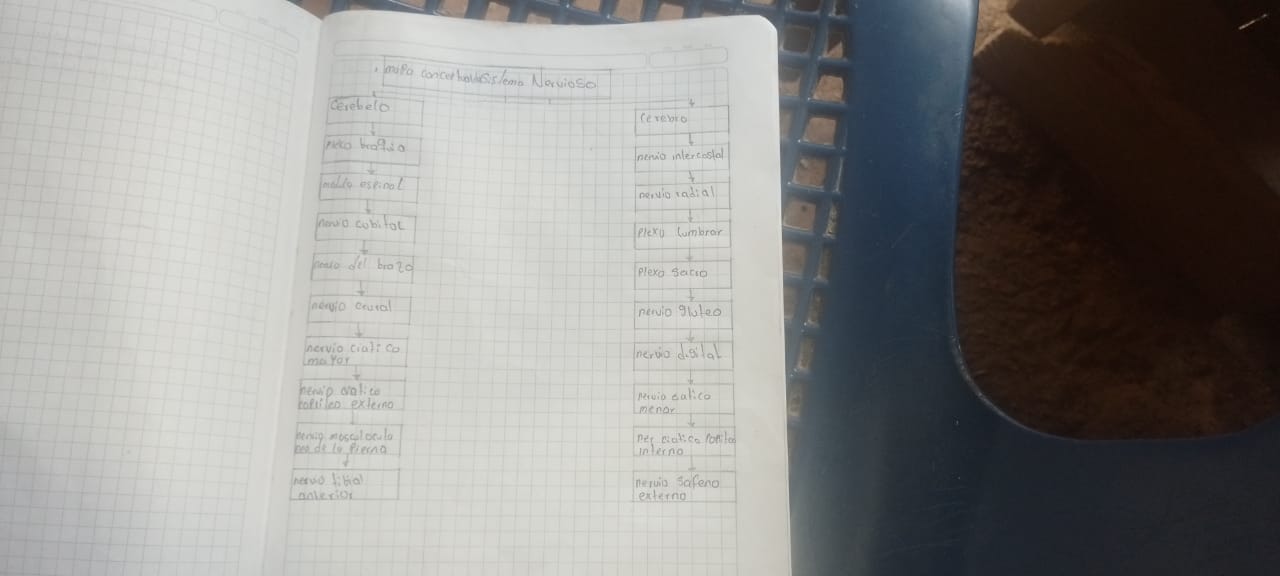 mapa conceptual Sistema Nervioso
Cerebelo
plexo braquio
medula espinal
nervio cubital
nervio del brazo
nervio crural
nervio ciatico
mayor
nervio ciatico
popliteo externo
nervio musculocuta
neo de la Pierna
nervio tibial
anterior
Cerebro
nervio intercostal
nervio radial
Plexo Lumbrar
Plexo Sacro
nervio gluteo
nervio digital
nervio ciatico
menor
ner ciatico Poplite
interno
nervio Safeno
externo